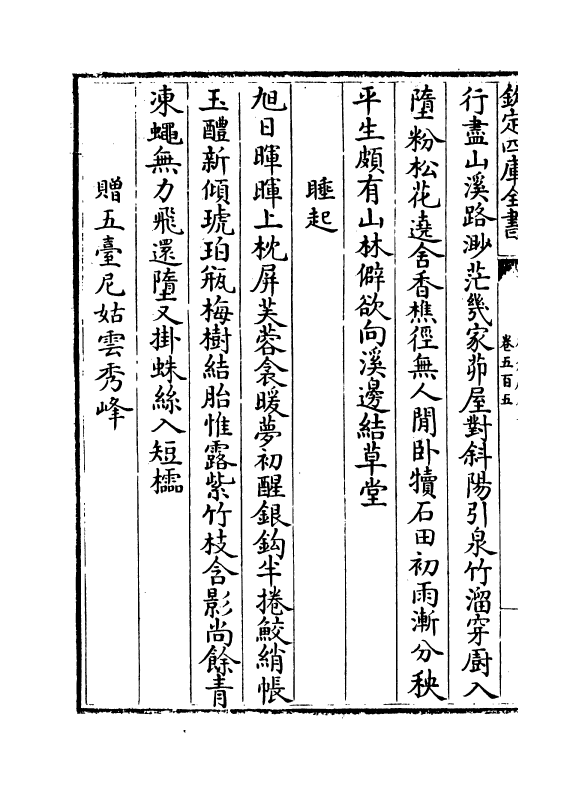 欽定四庫全書
卷五百五
行盡山溪路渺茫幾家茆屋對斜陽引泉竹溜穿廚入
墮粉松花遶舍香樵徑無人閒卧犢石田初雨漸分秧
平生頗有山林僻欲向溪邊結草堂
睡起
旭日暉暉上枕屏芙蓉衾暖夢初醒銀鈎半捲鮫綃帳
玉醴新傾琥珀瓶梅樹結胎惟露紫竹枝含影尚餘青
凍蠅無力飛還墮又掛蛛絲入短櫺
贈五臺尼姑雲秀峰